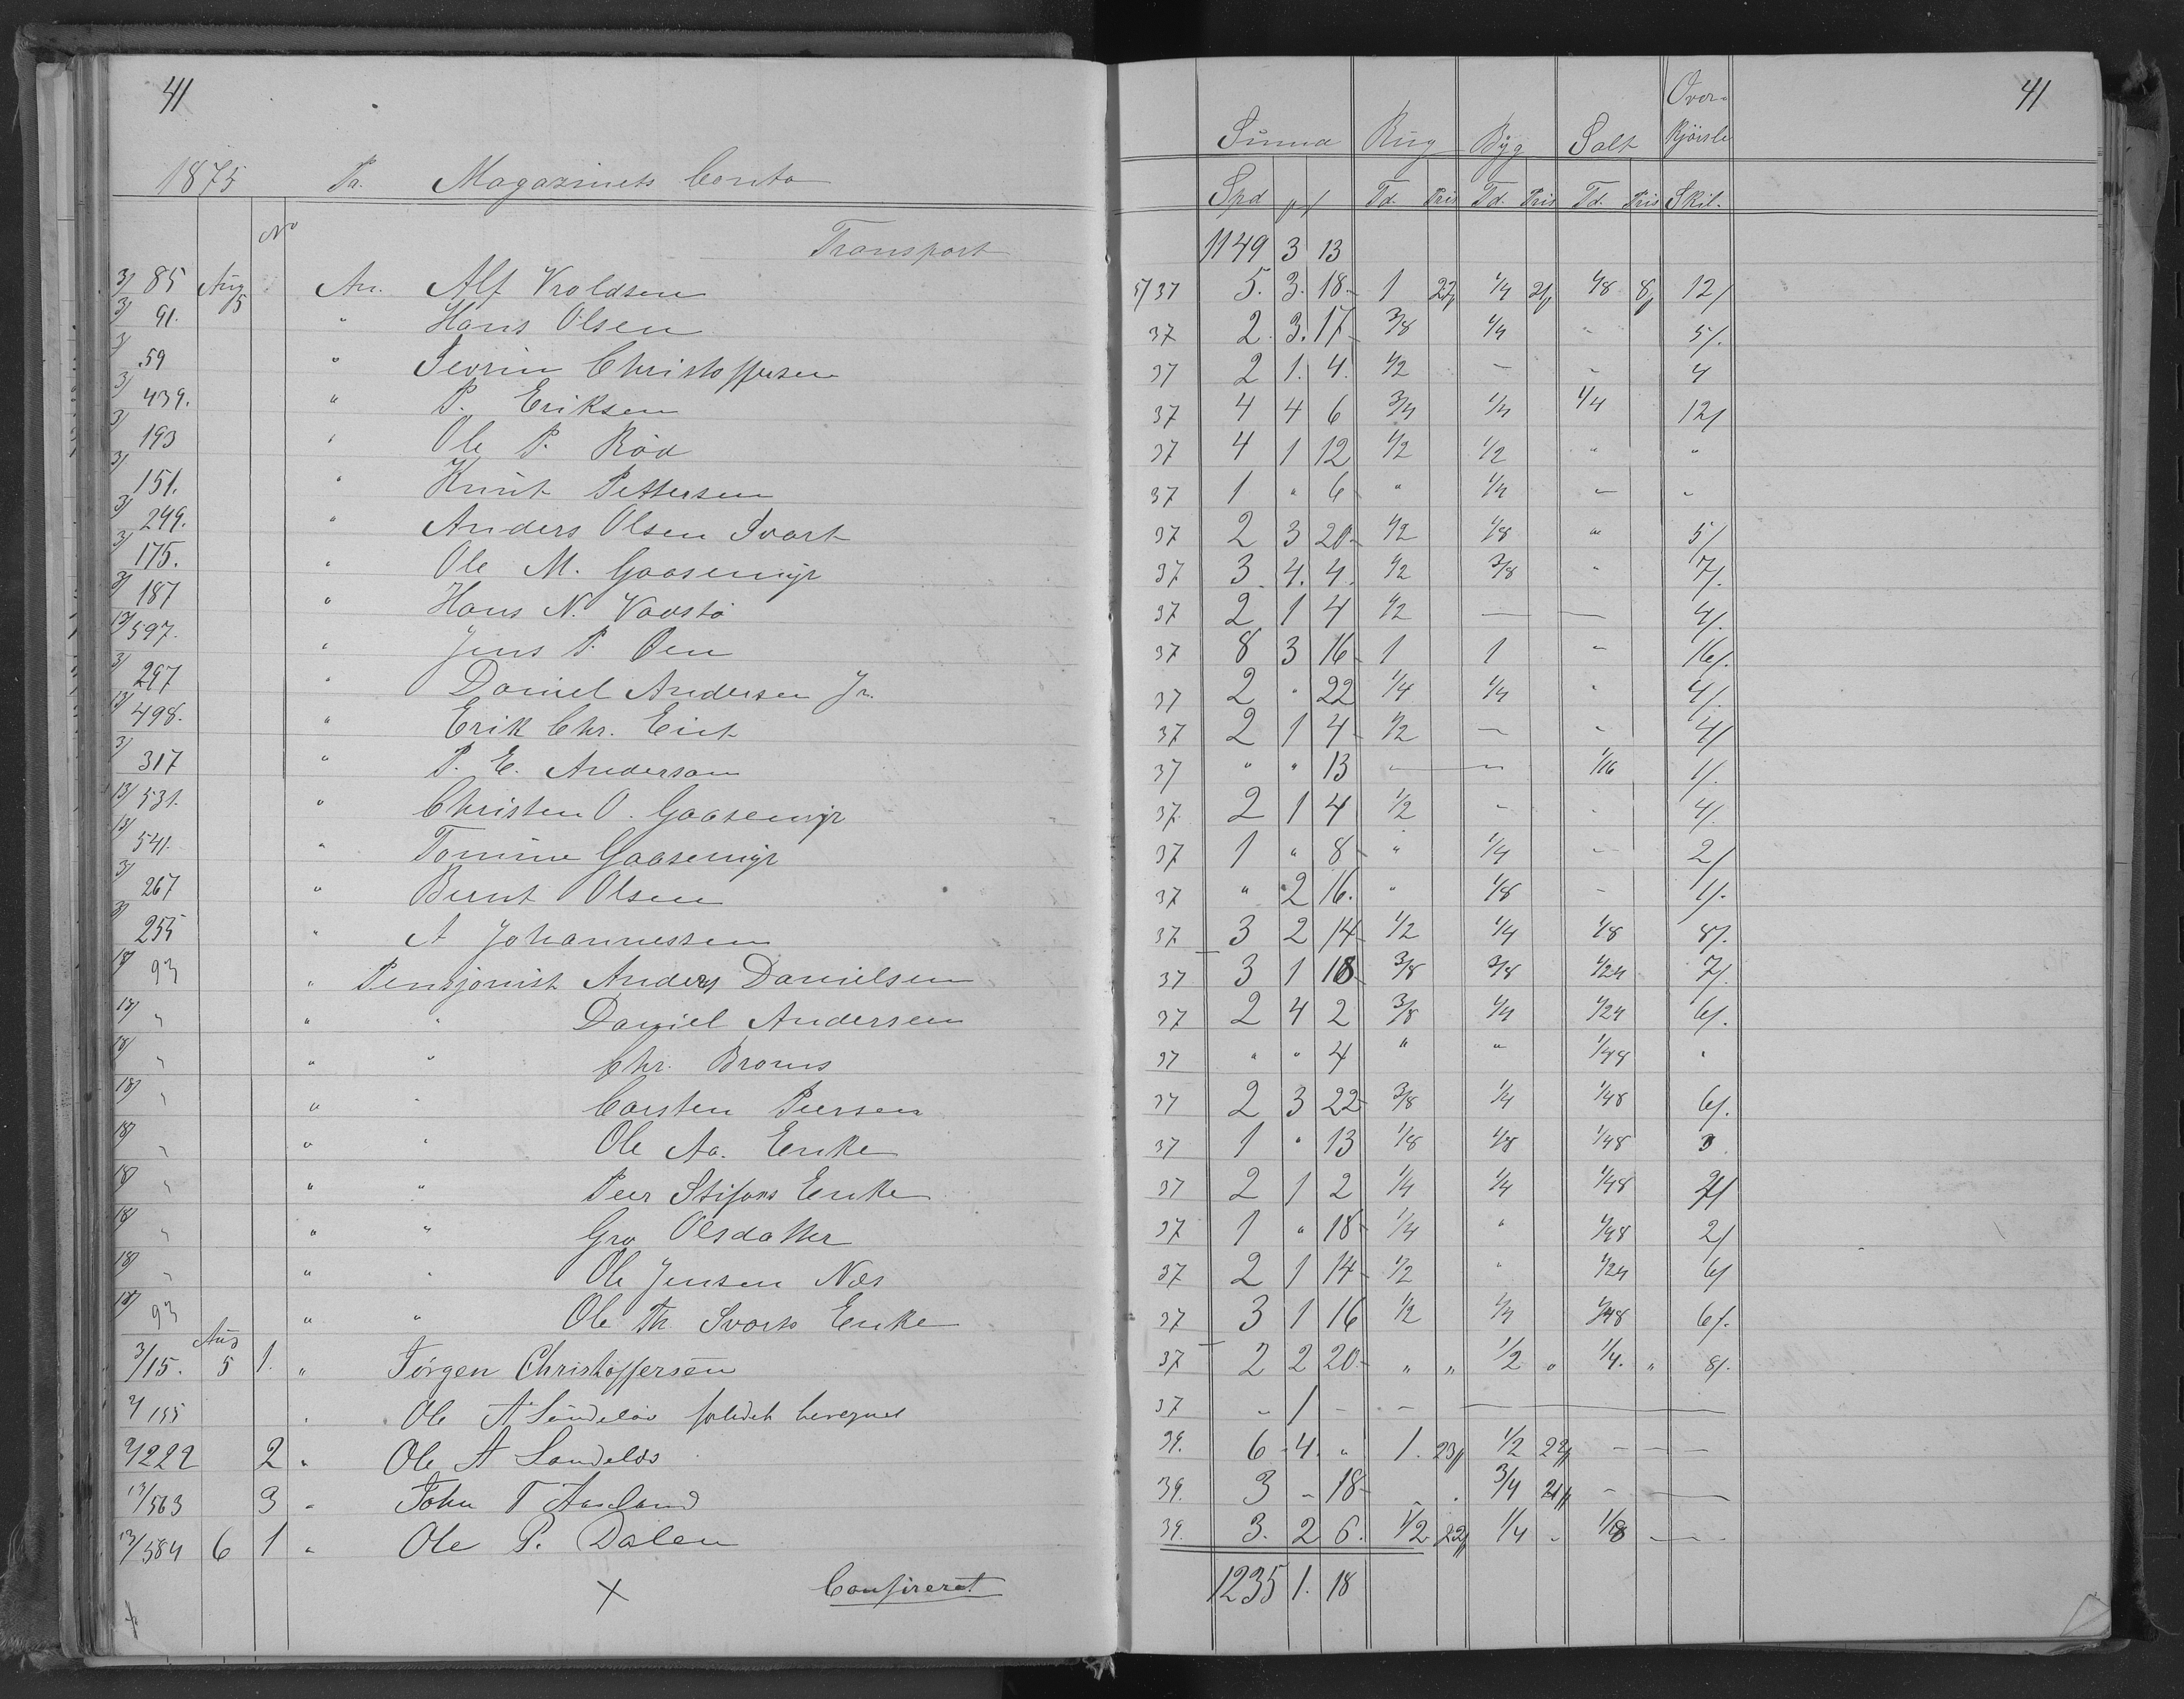 41
1875 Pr. Magazinets Conto
No
Transport
3/ 85 Aug 5 An. Alf Vroldsen
3/ 91. " Hans Olsen
3/ 59 " Sevrin Christoffersen
3/ 439. " P. Eriksen
3/ 193 " Ole P. Röd
3/ 151. " Knut Pettersen
3/ 249. " Anders Olsen Svart
3/ 175. " Ole M. Gaasemyr
3/ 187 " Hans N. Vaastö
13/ 597. " Jens P. Oen
3/ 297 " Daniel Andersen Jr.
13/ 498. " Erik Chr. Eict
3/ 317 " P. E. Andersom
13/ 531. " Christen O. Gaasemyr
13/ 541. " Tomine Gaasemyr
3/ 267 " Bernt Olsen
3/ 255 " A Johannessen
18/ 93 " Pensjonist Anders Danielsen
18/ " " " Daniel Andersen
18/ " " " Chr. Broms
18/ " " " Carsten Peersen
18/ " " " Ole Aa. Enke
18/ " " " Peer Stifans Enke
18/ " " " Gro Olsdatter
18/ " " " Ole Jensen Næs
18/ 93 " " Ole Th. Svarts Enke
3/15. Aug 5 1. " Jörgen Christoffersen
3/155 " Ole A
3/222 2 " Ole A Sandelöv
13/563 3 " John T Aasland
13/584 6 1 " Ole P. Dalen
x x Confireret
41
Summa Rug Byg Salt Over- kjörsle
Spd # / Td. Pris Td. Pris Td. Pris Skil.
1149 3 13
5/37 5. 3. 18 1 22/ 1/4 21/ 1/8 8/ 12/
37 2. 3. 17 3/8 1/4 - 5/.
37 2 1. 4. 1/2 - - 4
37 4 4 6 3/4 1/4 1/4 12/
37 4 1 12 1/2 1/2 " "
37 1 " 6 " 1/4 " "
37 2 3 20 1/2 1/8 " 5/
37 3. 4. 4. 1/2 3/8 " 7/.
37 2 1 4 1/2 - - 4/.
37 8 3 16 1 1 - 16/.
37 2 " 22 1/4 1/4 " 4/.
37 2 1 4 1/2 - - 4/
37 " " 13 - - 1/16 1/.
37. 2 1 4 1/2 - - 4/.
37 1 " 8 " 1/4 - 2/
37 " 2 16. " 1/8 - 1/.
37 3 2 14 1/2 1/4 1/8 8/.
37 3 1 18 3/8 3/8 1/24 7/.
37 2 4 2 3/8 1/4 1/24 6/.
37 " " 4 " " 1/48 "
37 2 3 22 3/8 1/4 1/48 6/.
37 1 " 13 1/8 1/8 1/48 3
37 2 1 2 1/4 1/4 1/48
37 1 " 18 1/4 " 1/48 2/
37 2 1 14 1/2 " 1/24 6/
37 3 1 16 1/2 1/4 1/48 6/.
37 2 2 20 " " 1/2 " 1/4. " 8/.
37 - 1 - -
39. 6 4. " 1. 23/ 1/2 22/ - - -
39. 3 - 18 - . 3/4 21/ - -
39. 3. 2 6. 1/2 22/ 1/4 - 1/8 - -
1235 1. 18